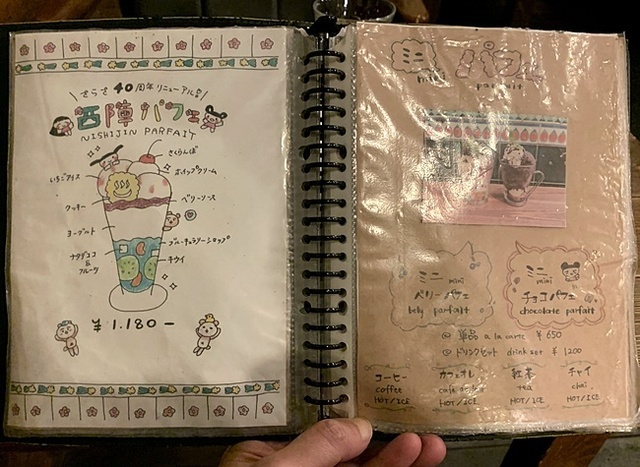 さらさ 40周年 リニューアル!!
西陣パフェ
NISHIJIN PARFAIT
さくらんぼ
いちごアイス
ホイップクリーム
クッキー
ベリーソース
ヨーグルト
ブルーキュラソーシロップ
ナタデココ
&
フルーツ
キウイ
¥1.180-
ミニ
mini
パフェ
parfait
ミニ
mini
ベリーパフェ
bely parfait
ミニ
mini
チョコパフェ
chocolate parfait
単品 a la carte ¥650
ドリンクセット drink set ¥1200
コーヒー
coffee
HOT/ICE
カフェオレ
HOT/ICE
紅茶
tea
HOT/ICE
チャイ
chai
HOT/ICE